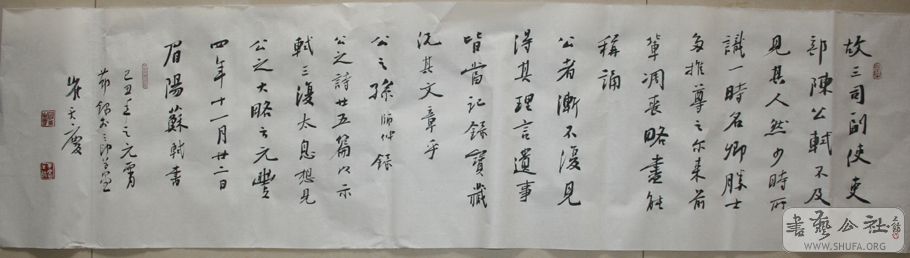 故三司副使吏
部陳公軾不及
見其人然少時所
識一時名卿勝士
多推尊之尔来前
輩凋喪略盡能
稱誦
公者漸不復見
得其理言遺事
皆當記録寶藏
況其文章乎
公之孫師仲録
公之詩廿五篇以示
軾三復太息想見
公之大略云元豐
四年十一月廿二日
眉陽蘇軾書
己丑年之元宵
崔天慶
書藝公社
WWW.SHUFA.ORG